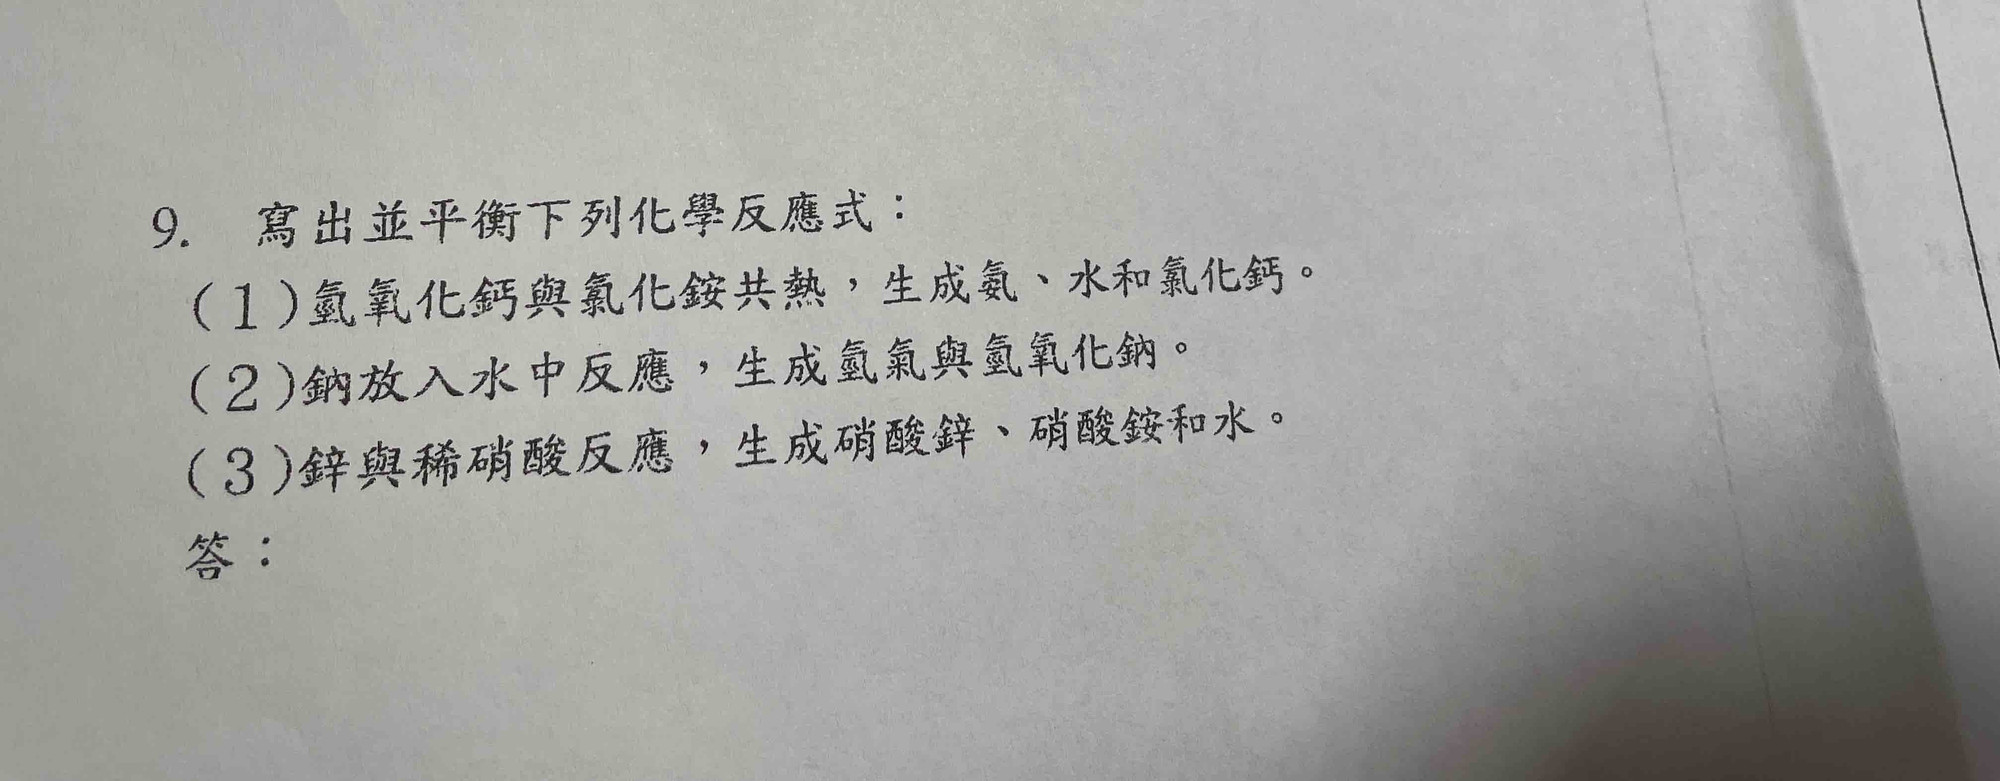 9. 寫出並平衡下列化學反應式：
(1)氫氧化鈣與氯化銨共熱，生成氨、水和氯化鈣。
(2)鈉放入水中反應，生成氫氣與氫氧化鈉。
(3)鋅與稀硝酸反應，生成硝酸鋅、硝酸銨和水。
答：